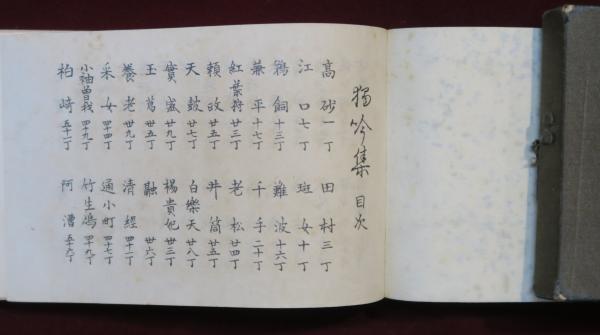 獨吟集 目次
高砂 一丁 田村 三丁
江口 七丁 班女 十丁
鵜飼 十三丁 難波 十六丁
兼平 十七丁 千手 二十丁
紅葉狩 廿三丁 老松 廿四丁
頼政 廿五丁 井筒 廿五丁
天鼓 廿七丁 白樂天 廿八丁
實盛 廿九丁 楊貴妃 卅三丁
玉葛 卅五丁 融 卅六丁
養老 卅九丁 清經 四十一丁
采女 四十四丁 通小町 四十七丁
小袖曽我 四十九丁 竹生嶋 四十九丁
柏崎 五十一丁 阿漕 五十六丁